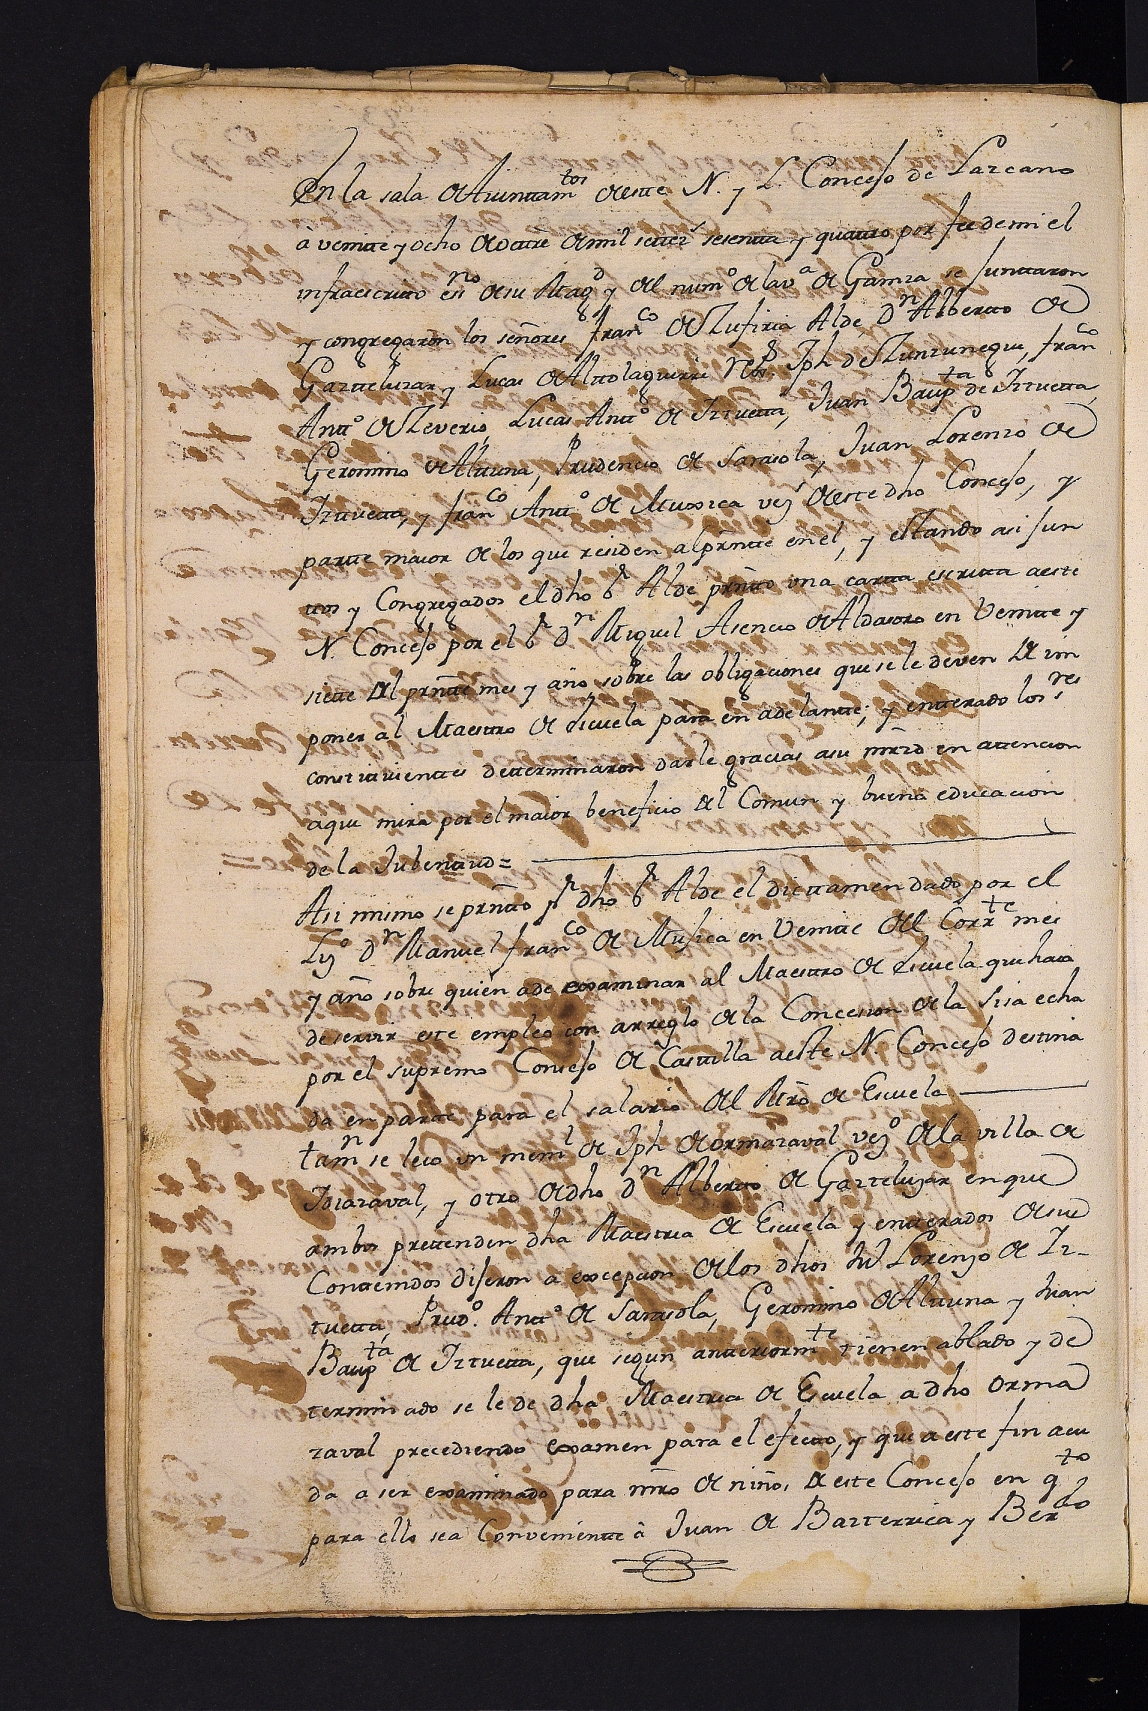 En la sala de Aiuntamtos de este N. y L. Concejo de Lazcano
à veinte y ocho de octtre de mil settesr sesenta y quattro por fee de mi el
infraescritto esno de su Magd y del numo de la va de Gainza se junttaron
y congregaron los señores Franco de Zufiria Alde, Dn Alberto de
Garttelusar, y Lucas de Alttolaguirre Rexs Jph de Zunzunegui, Franco
Antto de Zeverio, Lucas Antto de Izttuetta, Juan Baupta de Izttuetta,
Geronimo de Altuna, Prudencio de Sarasola, Juan Lorenzo de
Izttuetta, y Franco Antto de Muxica vezs de este dho Concejo, y
partte maior de los que residen al prntte en el, y estando asi jun
ttos y Congregados el dho Sr Alde prntto una cartta escritta a este
N. Concejo por el Sr Dn Miguel Asencio de Aldasoro en Veintte y
siette del prntte mes y año sobre las obligaciones que se le deven de im
poner al Maestro de Escuela para en adelantte; y entterado los sres
constituienttes determinaron darle gracias a su mrzd en attencion
a que mira por el maior beneficio del Comun y buena educacion
de la Jubenttud =
Asi mismo se prntto pr dho Sr Alde el dicttamen dado por el
Lizdo Dn Manuel Franco de Mujica en Veintte del Corrte mes
y año sobre quien a de examinar al Maestro de Escuela que haia
de servir este empleo con arreglo de la Concesion de la sisa echa
por el supremo Consejo de Casttilla a este N. Concejo destina
da en partte para el salario del Mro de Escuela
tamn se leio un meml de Jph de Ormazaval vezo de la villa de
Idiazaval, y otro de dho Dn Alberto de Gartelusar en que
ambos prettenden dha Maestria de Escuela y entterados de su
Contenidos dijeron a excepcion de los dhos Jun Lorenzo de Iz-
tuetta, Prudo. Antto de Sarasola, Geronimo de Altuna y Juan
Baupta de Iztuetta, que segun antteriormte tienen ablado y de
terminado se le de dha Maestria de Escuela a dho Orma
zaval precediendo examen para el efecto, y que a este fin acu
da a ser examinado para mro de niños de este Concejo en qto
para ello sea Convenientte à Juan de Barterrica y Berdo